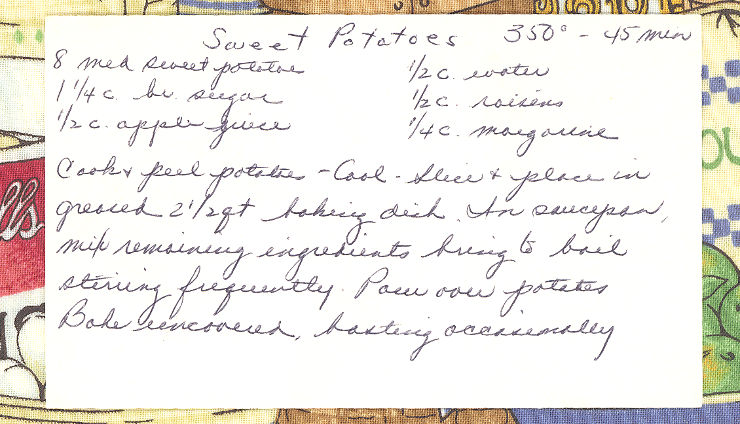 Sweet Potatoes 350° - 45 min
8 med sweet potatoe
1 1/4 c. br. sugar
1/2 c. apple juice
1/2 c. water
1/2 c. raisens
1/4 c. margarine
Cook & peel potatoes - Cool - slice & place in
greased 2 1/2 qt baking dish. In saucepan,
mix remaining ingredients bring to boil
stirring frequently. Pour over potatoes
Bake uncovered, basting occasionally
lls